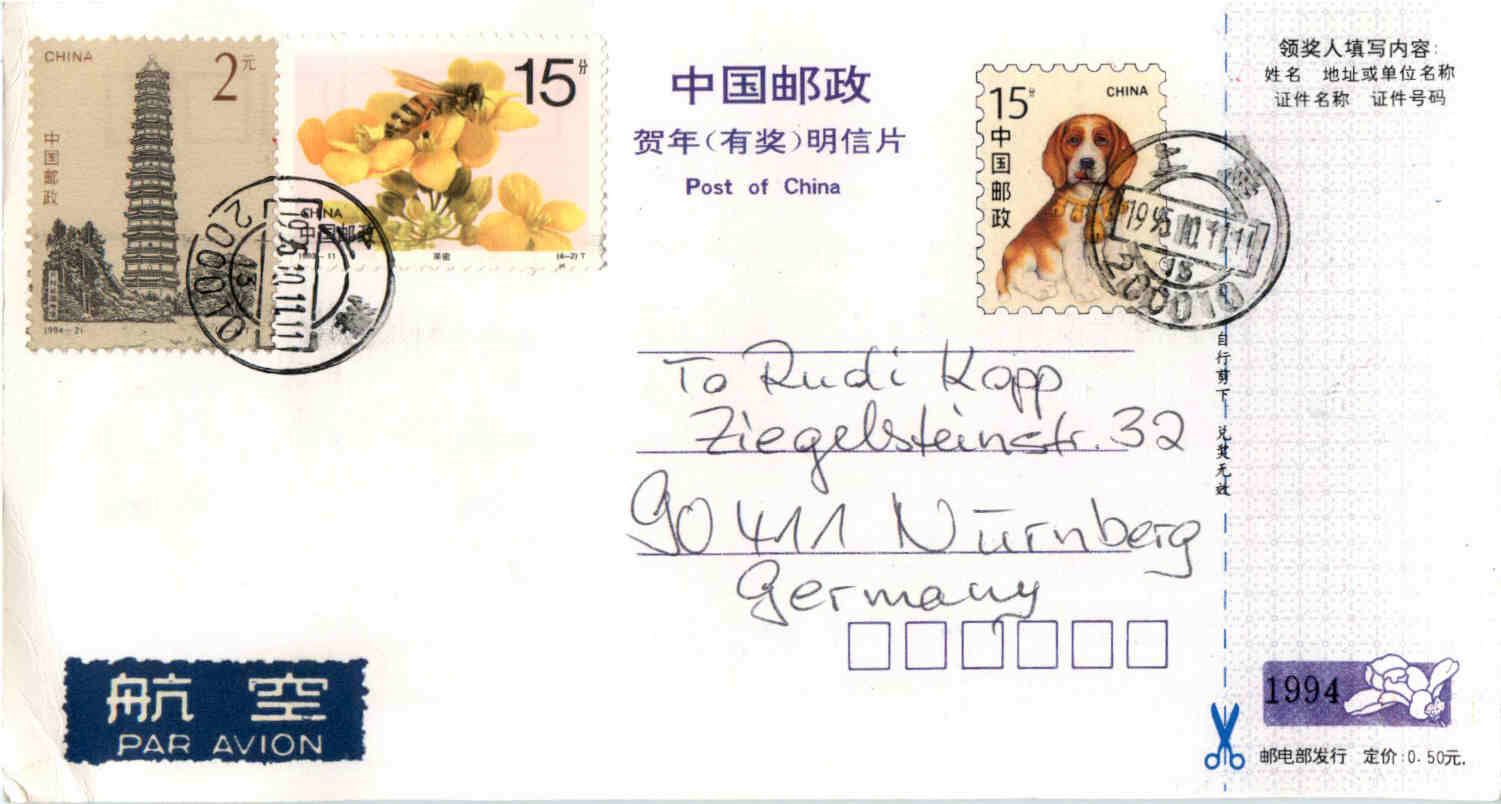 CHINA
2元
中国邮政
1994-21
15分
CHINA
中国邮政
1993-11
采蜜
(4-2)T
1995.10.11.11
13
200010
中国邮政
贺年(有奖)明信片
Post of China
15分
CHINA
中国邮政
上海
1995.10.11.11
200010
领奖人填写内容:
姓名 地址或单位名称
证件名称 证件号码
自行剪下 兑奖无效
To Rudi Kopp
Ziegelsteinstr. 32
90411 Nürnberg
Germany
航空
PAR AVION
1994
邮电部发行 定价:0.50元.